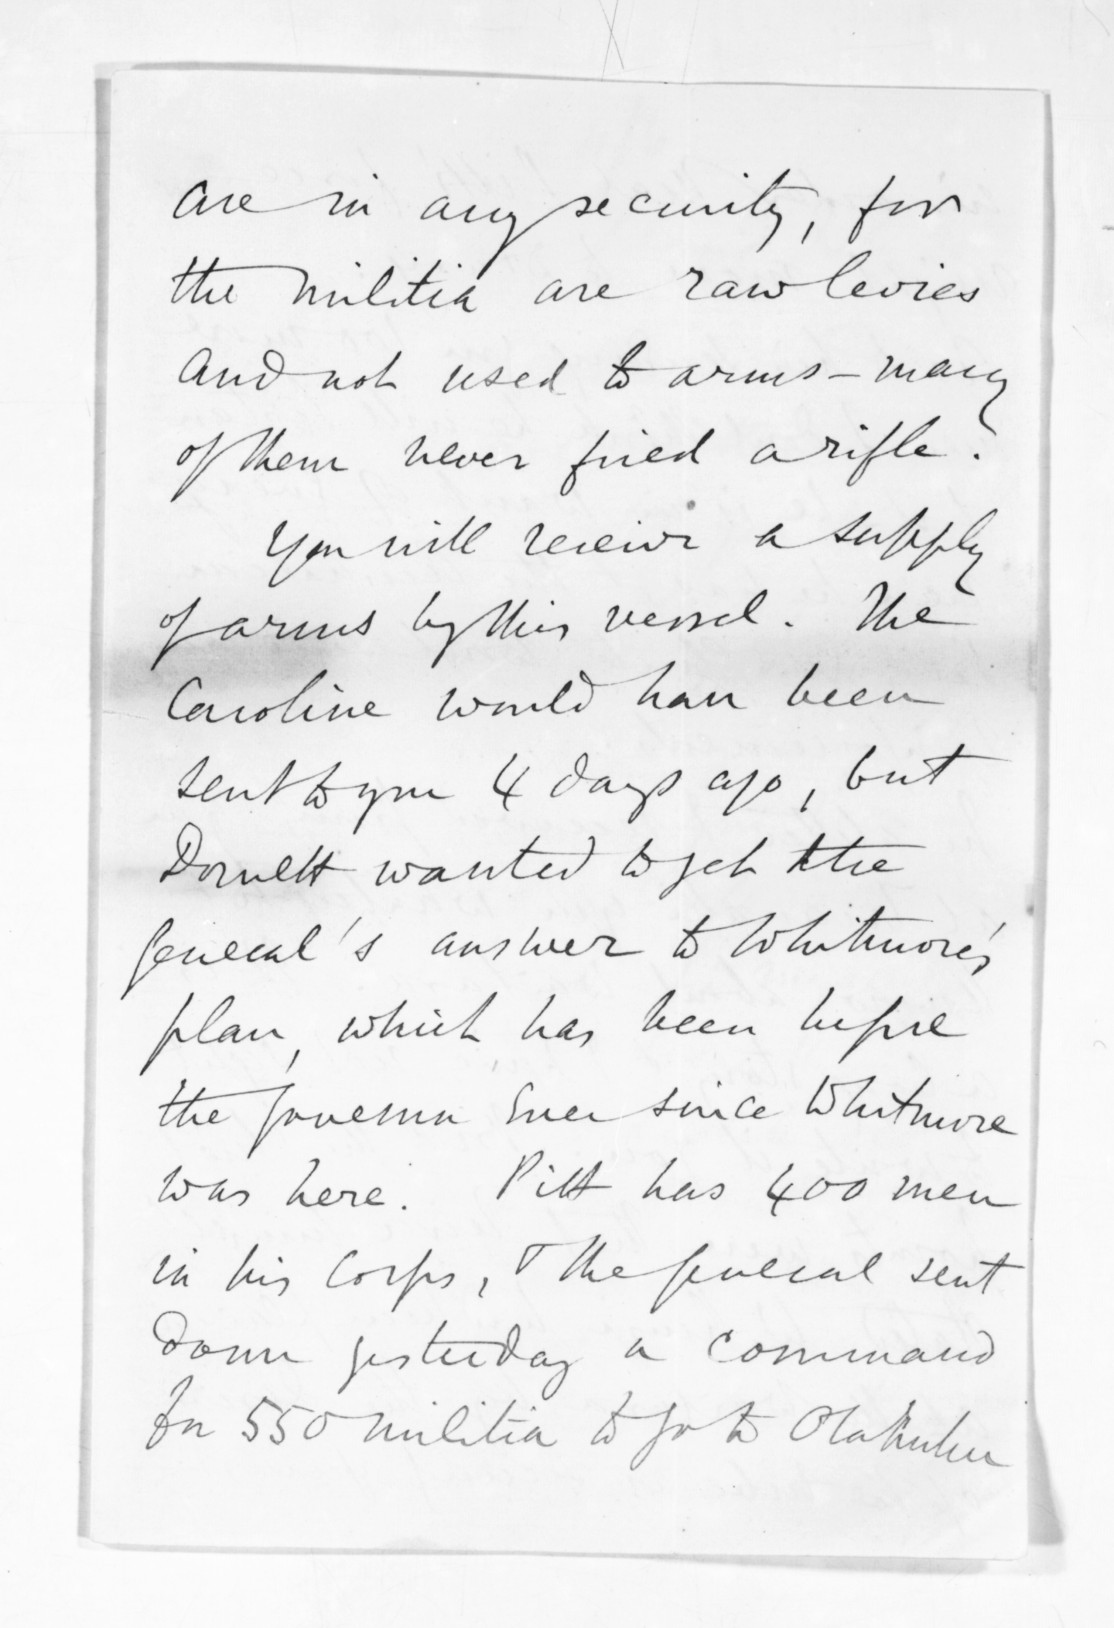 are in any security, for
the militia are raw levies
and not used to arms – many
of them never fired a rifle.
You will receive a supply
of arms by this vessel. The
Caroline would have been
sent to you 4 days ago, but
wanted to get the
General's answer to Whitmore's
plan, which has been before
the Governor ever since Whitmore
was here. Pitt has 400 men
in his Corps, & the General sent
down yesterday a command
for 550 militia to go to Otahuhu